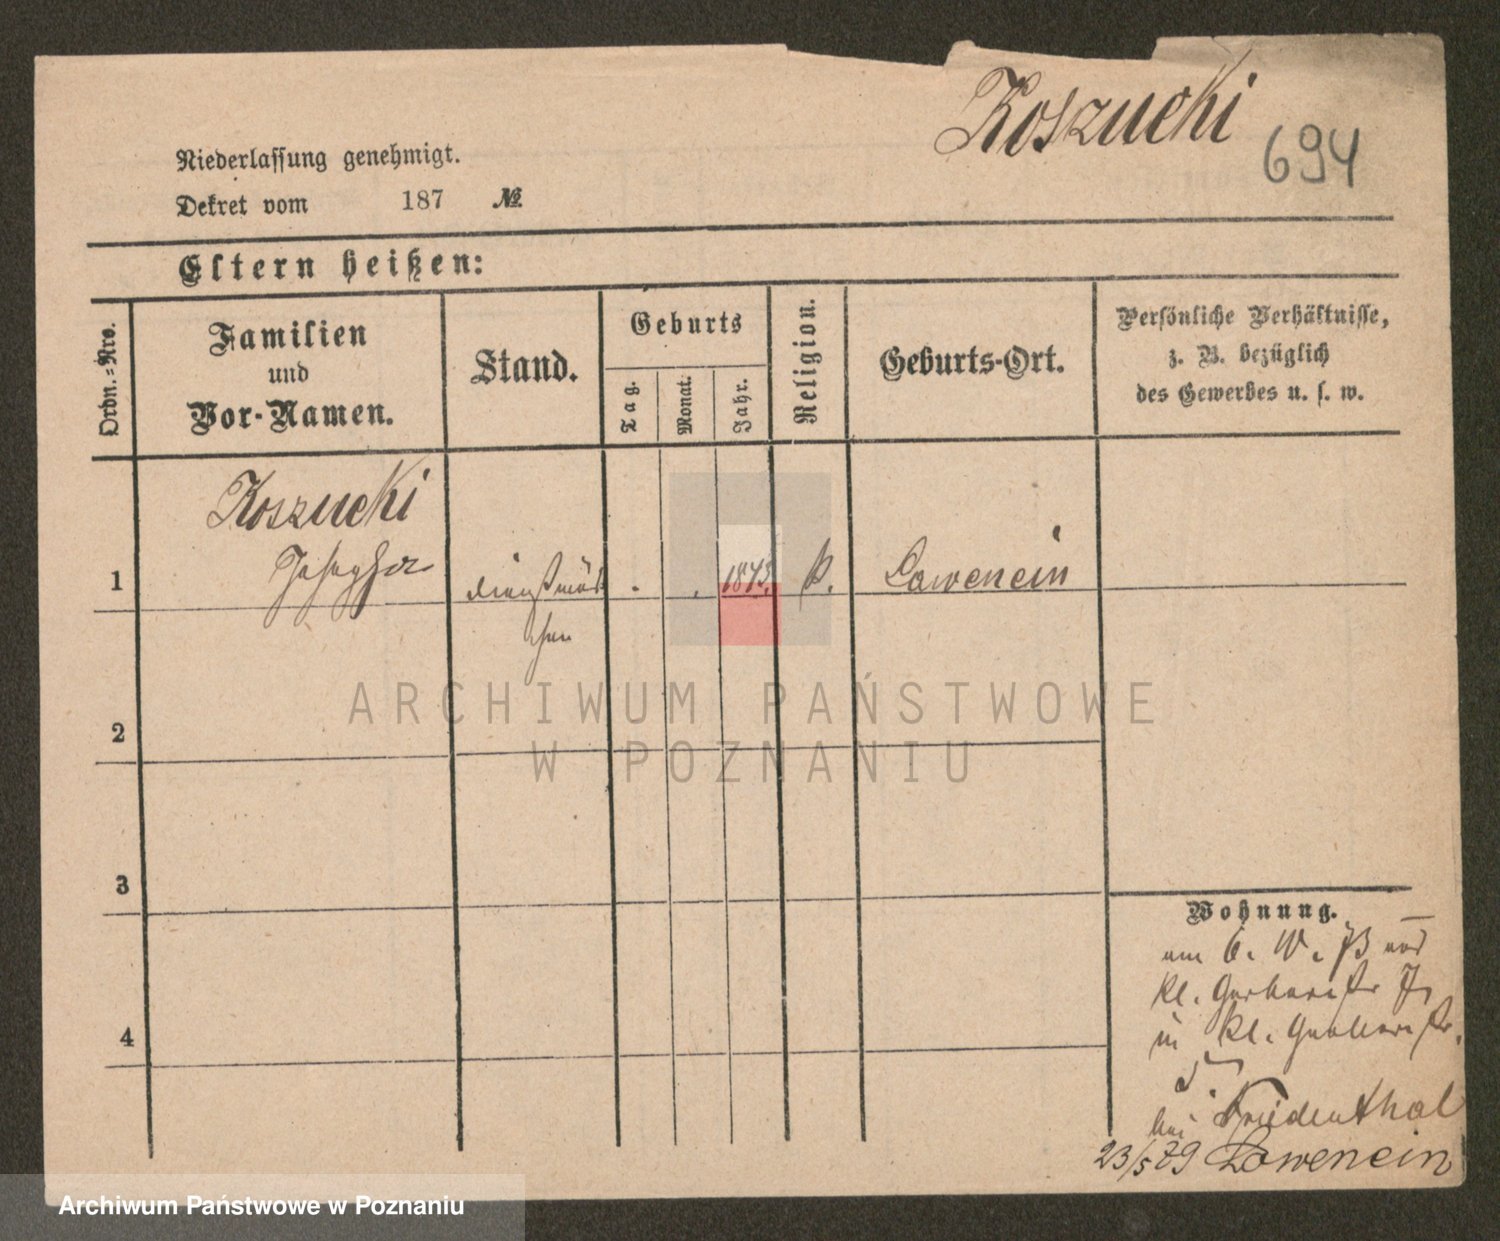 Koszucki
694
Niederlassung genehmigt.
Dekret vom 187 №
Eltern heißen:
Ordn.-Nro.
Familien
und
Vor-Namen.
Stand.
Geburts
Tag.
Monat.
Jahr.
Religion.
Geburts-Ort.
Persönliche Verhältnisse,
z. B. bezüglich
des Gewerbes u. s. w.
Koszucki
1 Josepha Dienstmäd 1843. k. Lowencin
chen
2
3
4
Wohnung.
am 6. W. B
kl. Gerberstr 7,
in kl. Gerberstr.
5.
bei Friedenthal
23/5 79 Lowencin
ARCHIWUM PAŃSTWOWE
W POZNANIU
Archiwum Państwowe w Poznaniu